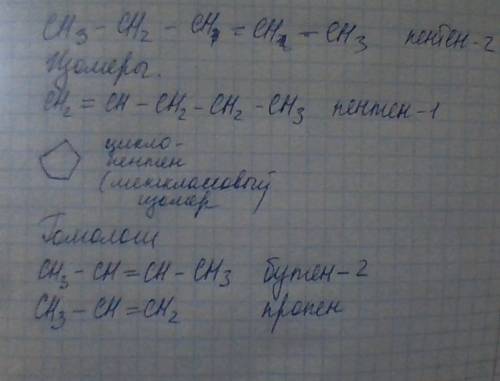 CH₃ - CH₂ - CH = CH - CH₃ пентен-2
Изомеры.
CH₂ = CH - CH₂ - CH₂ - CH₃ пентен-1
цикло-
пентен
(межклассовый
изомер
Гомологи
CH₃ - CH = CH - CH₃ бутен-2
CH₃ - CH = CH₂ пропен